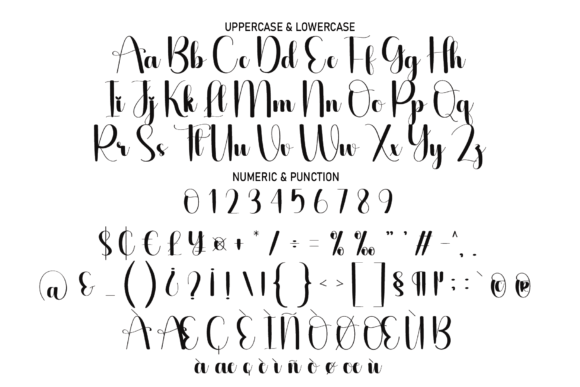 UPPERCASE & LOWERCASE
Aa Bb Cc Dd Ee Ff Gg Hh
Ii Jj Kk Ll Mm Nn Oo Pp Qq
Rr Ss Tt Uu Vv Ww Xx Yy Zz
NUMERIC & PUNCTION
0 1 2 3 4 5 6 7 8 9
$ ₵ € £ ¥ ¤ + * / ÷ = % ‰ " ' # – ^ , .
@ & _ ( ) ¿ ? ¡ ! \ | { } < > [ ] § ¶ ; : ` © ®
À Æ Ç È Ì Ñ Ò Ø Œ Ù ß
à æ ç è ì ñ ò ø œ ù